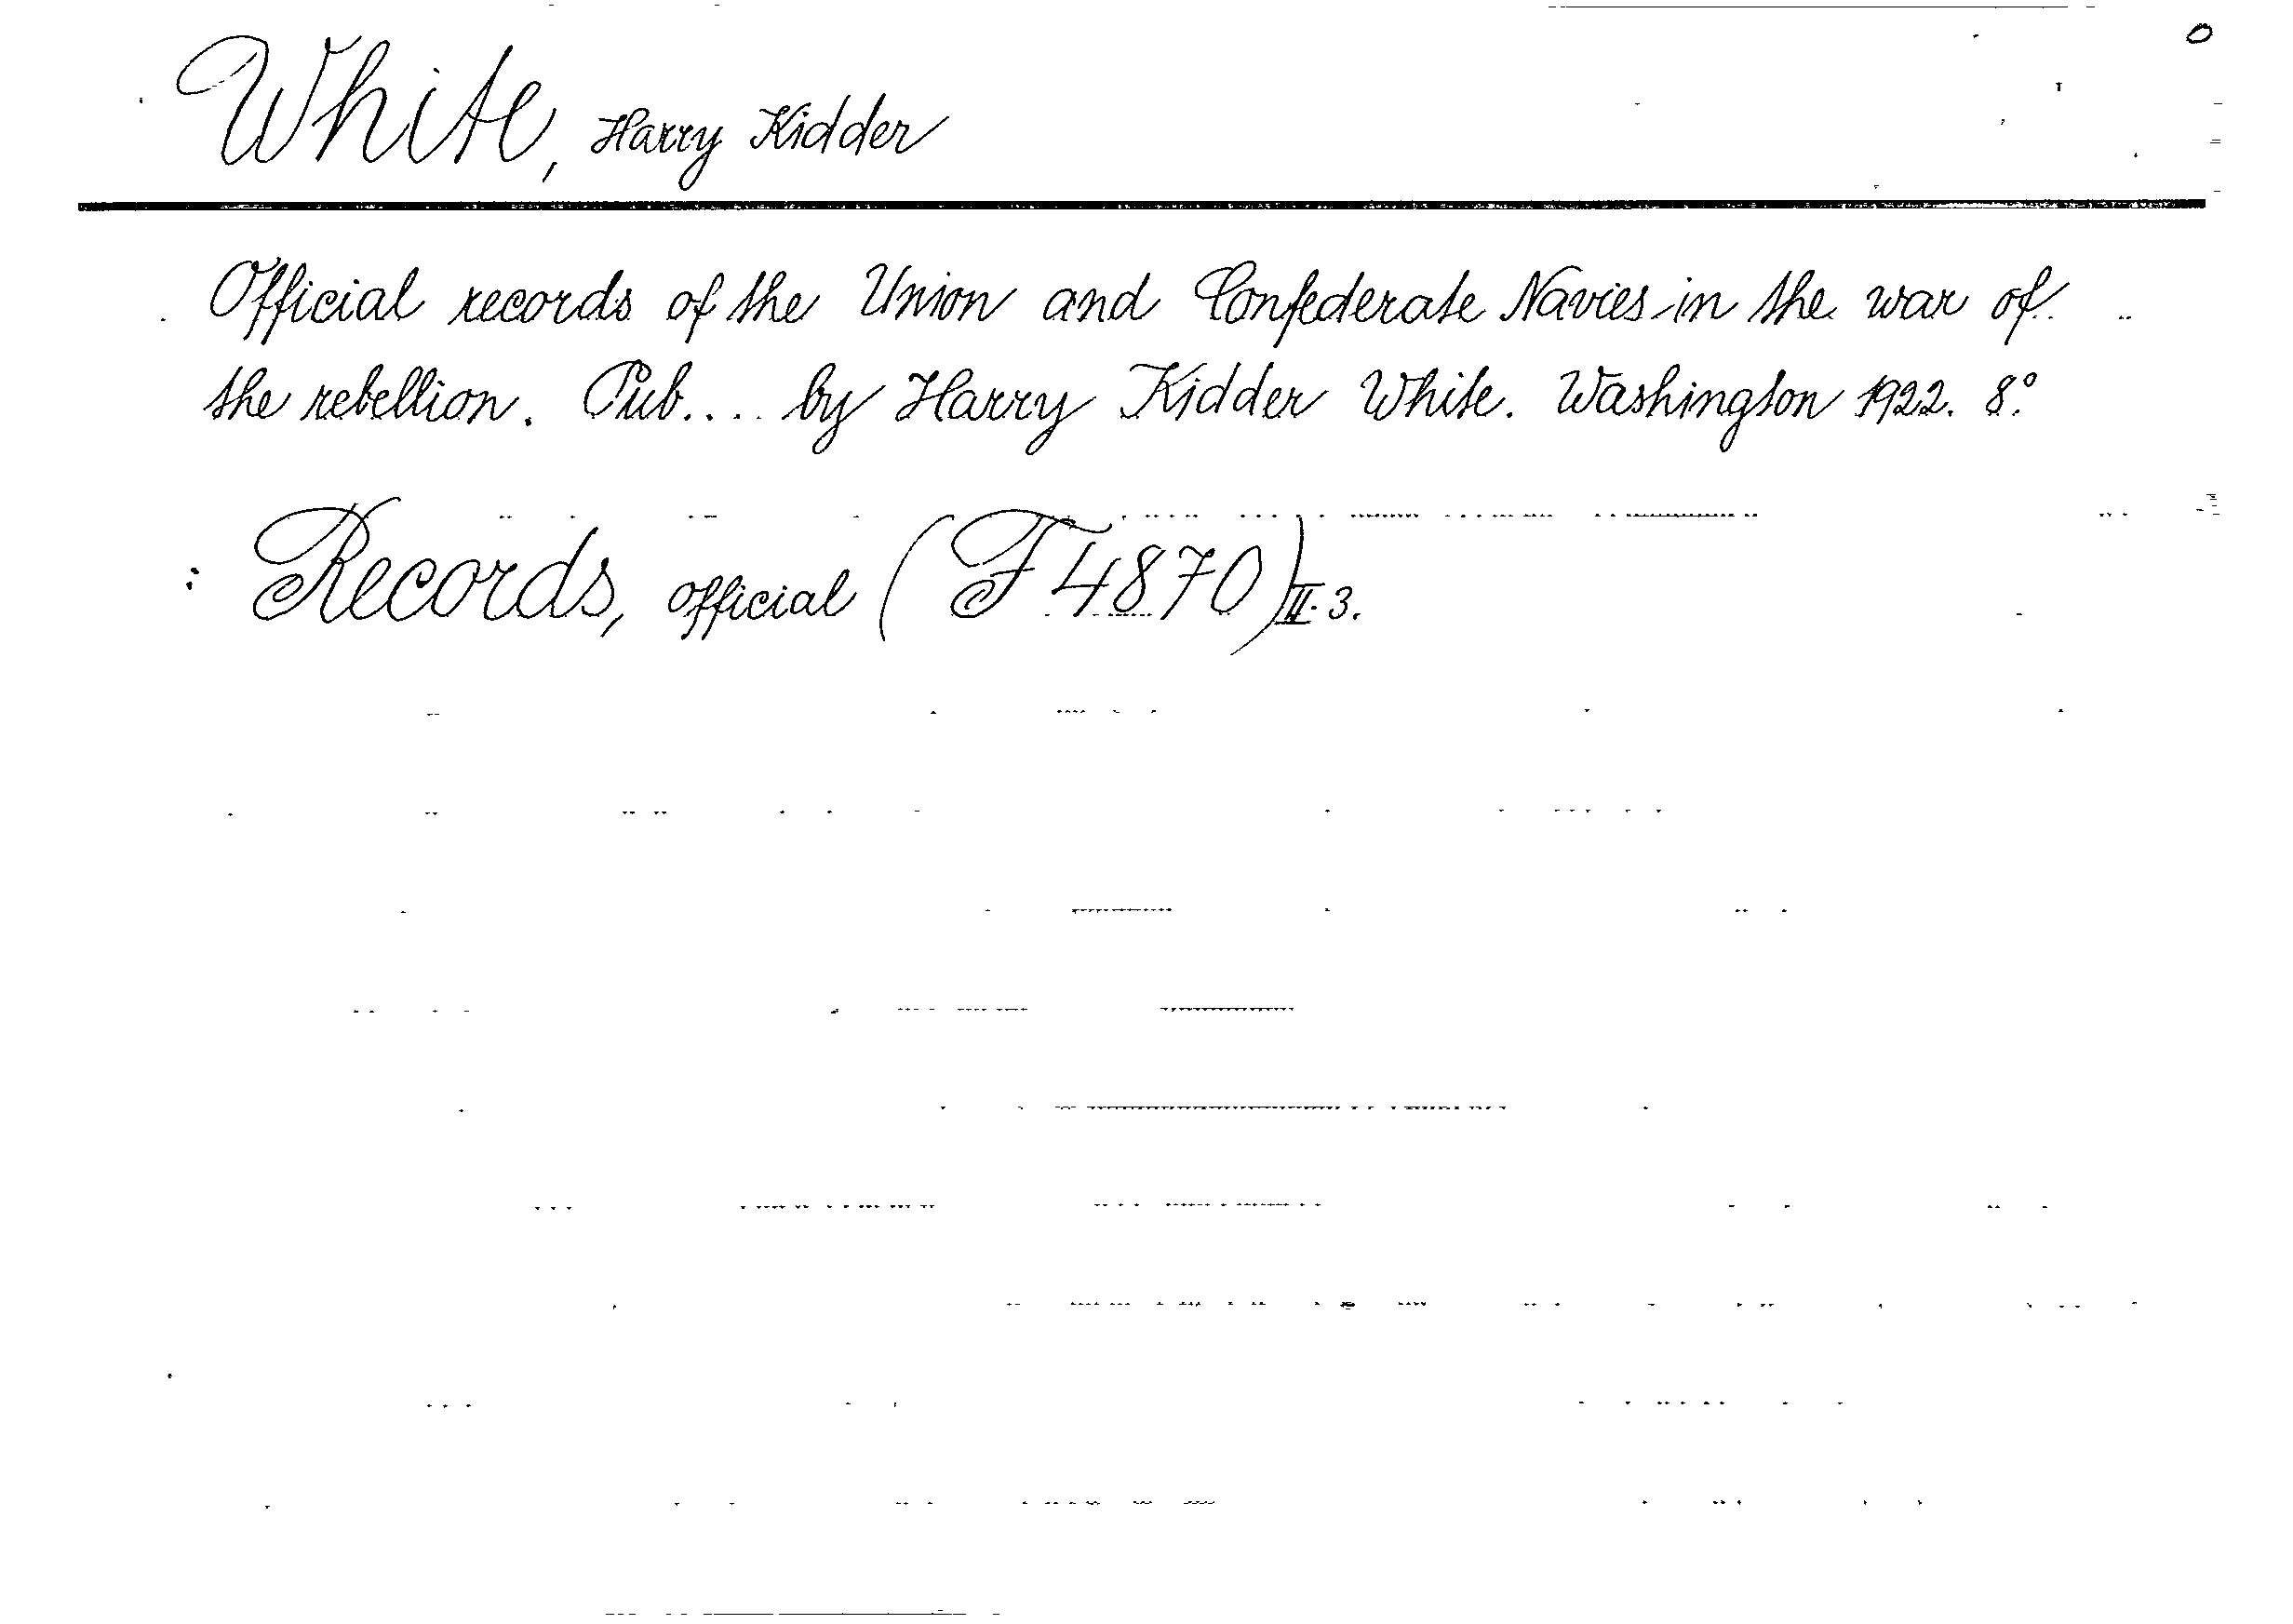 White, Harry Kidder
Official records of the Union and Confederate Navies in the war of
the rebellion. Pub.... by Harry Kidder White. Washington 1922. 8°.
: Records, official (F 4870) II. 3.